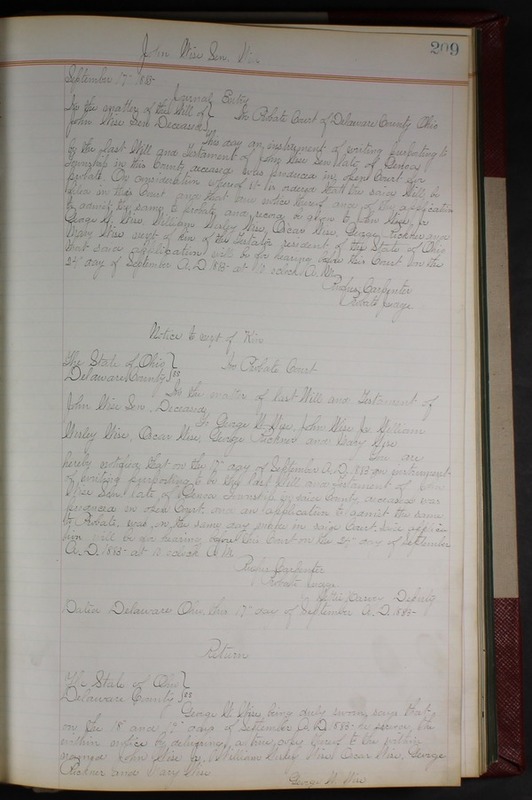 209
John Wise Sen. Will
September 17" 1885
Journal Entry
In the matter of the Will of } In Probate Court of Delaware County, Ohio
John Wise Sen Deceased }
This day an instrument of writing purporting to
be the last Will and Testament of John Wise Sen late of Genoa
Township in this County deceased was produced in open Court for
probate. On consideration whereof it is ordered that the said Will be
filed in this Court and that due notice thereof and of the application
to admit the same to probate and record be given to John Wise Jr
George W. Wise, William Wesley Wise, Oscar Wise, George and
Mary Wise next of kin of the Testator resident of the State of Ohio
that said application will be for hearing before this Court on the
day of September A.D. 1885 at 10 oclock A.M.
Rufus Carpenter
Probate Judge
Notice to next of Kin
The State of Ohio }
Delaware County } ss In Probate Court
In the matter of last Will and Testament of
John Wise Sen. Deceased
To George W. Wise, John Wise Jr William
Wesley Wise, Oscar Wise, George and Mary Wise
You are
hereby notified that on the 17" day of September A.D. 1885 an instrument
of writing purporting to be the last Will and Testament of John
Wise Sen. late of Genoa Township in said County, deceased was
produced in open Court and an application to admit the same
to Probate was on the same day made in said Court. Said applica
tion will be for hearing before this Court on the day of September
A.D. 1885 at 10 oclock A.M.
Rufus Carpenter
Probate Judge
Deputy
Dated Delaware, Ohio, this 17" day of September A.D. 1885
Return
The State of Ohio }
Delaware County } ss
George W. Wise, being duly sworn, says that
on the 18" and day of September A.D. 1885 he served the
within notice by delivering a true copy thereof to the within
named John Wise Jr. William Wesley Wise, Oscar Wise, George
and Mary Wise
George W. Wise